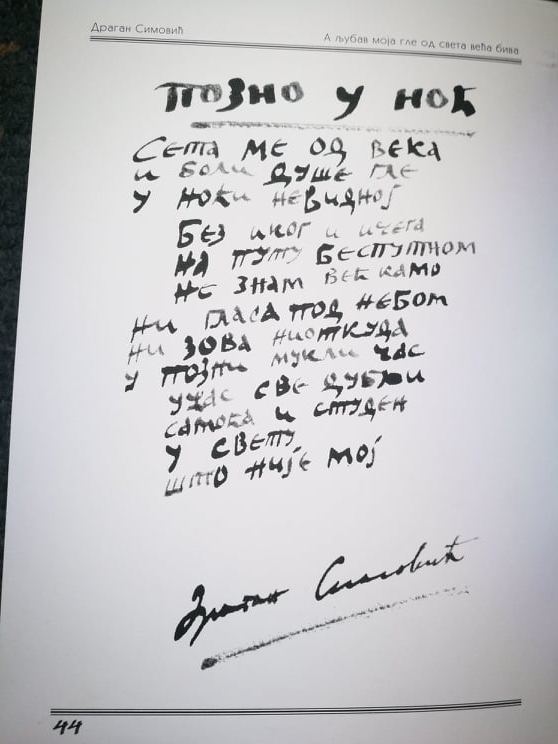 Драган Симовић
А љубав моја гле од света већа бива
ПОЗНО У НОЋ
СЕТА МЕ ОД ВЕКА
И БОЛИ ДУШЕ ГЛЕ
У НОЋИ НЕВИДНОЈ
БЕЗ ИКОГ И ИЧЕГА
НА ПУТУ БЕСПУТНОМ
НЕ ЗНАМ ВЕЋ КАМО
НИ ГЛАСА ПОД НЕБОМ
НИ ЗОВА НИОТКУДА
У ПОЗНИ МУКЛИ ЧАС
УЖАС СВЕ ДУБЉИ
САМОЋА И СТУДЕН
У СВЕТУ
ШТО НИЈЕ МОЈ
Драган Симовић
44